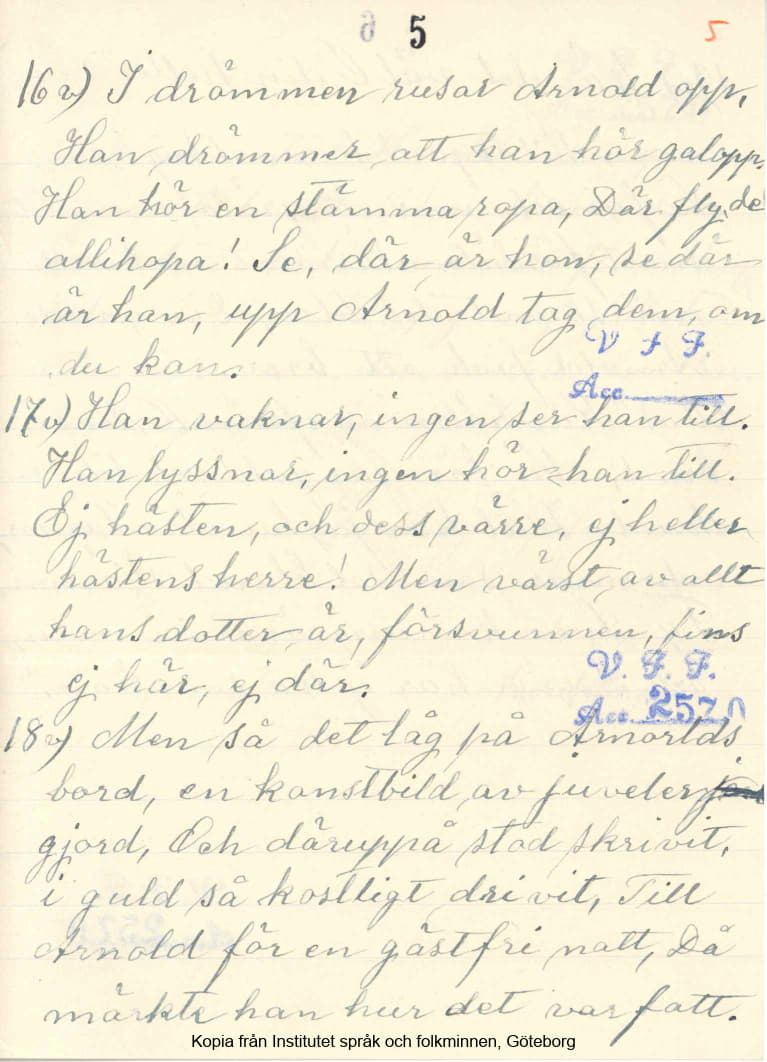 6 5 5
16 v) I drömmen rusar Arnold opp,
Han drömmer att han hör galopp.
Han hör en stämma ropa, Där fly de
allihopa! Se, där är hon, se där
är han, upp Arnold tag dem, om
du kan.
V F F.
Acc.
17 v) Han vaknar, ingen ser han till.
Han lyssnar, ingen hör han till.
Ej hästen, och dess värre, ej heller
hästens herre! Men värst av allt
hans dotter är, försvunnen, fins
ej här, ej där.
V. F. F.
Acc. 2570
18 v) Men så det låg på Arnorlds
bord, en konstbild av juveler
gjord, Och däruppå stod skrivit,
i guld så kostligt drivit, Till
Arnold för en gästfri natt, Då
märkte han hur det var fatt.
Kopia från Institutet språk och folkminnen, Göteborg